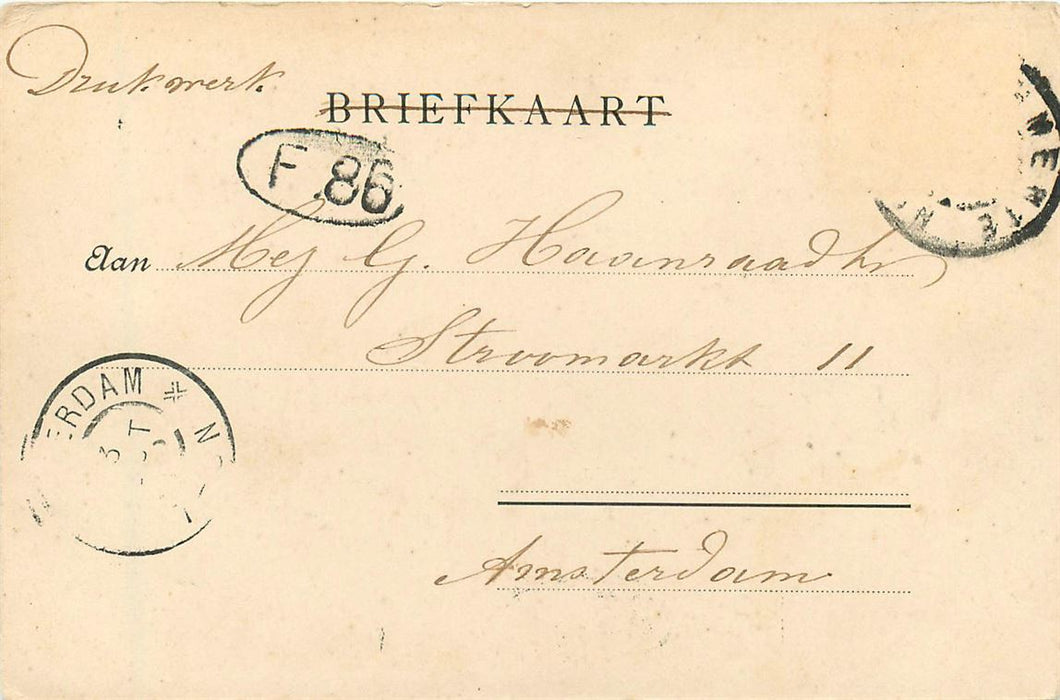 Drukwerk.
BRIEFKAART
F. 86
Aan Mej G. Haanraadts
Stroomarkt 11
ERDAM N
3
Amsterdam